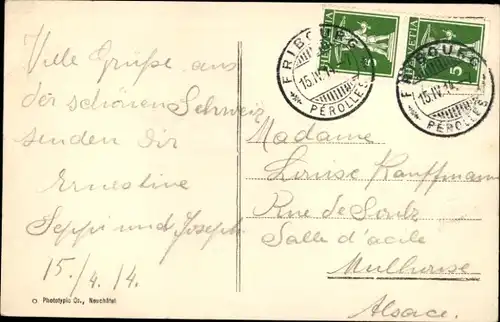 Viele Grüße aus
der schönen Schweiz
senden dir
Ernestine
Seppi und Joseph.
15./4. 14.
Phototypie Co., Neuchâtel
HELVETIA
5
HELVETIA
5
FRIBOURG
15.IV.14
PÉROLLES
FRIBOURG
15.IV.14
PÉROLLES
Madame
Louise Kauffmann
Rue de Soultz
Salle d'acile
Mulhouse
Alsace.